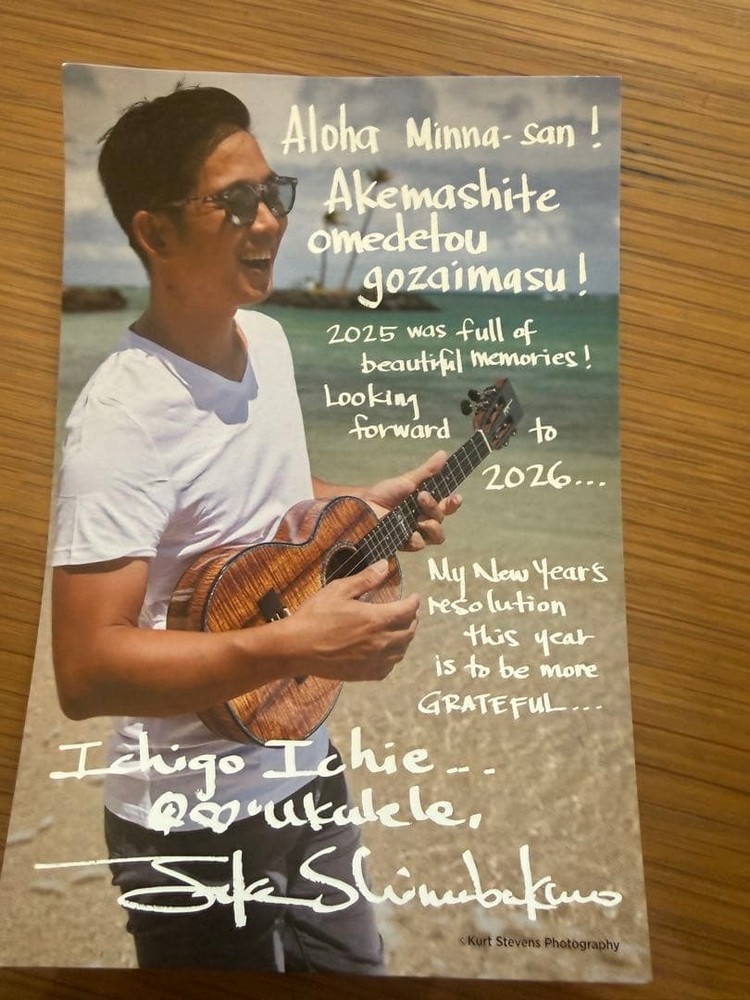 Aloha Minna-san!
Akemashite
omedetou
gozaimasu!
2025 was full of
beautiful memories!
Looking
forward to
2026...
My New Year's
resolution
this year
is to be more
GRATEFUL...
Ichigo Ichie...
& ♡ 'ukulele,
Jake Shimabukuro
©Kurt Stevens Photography